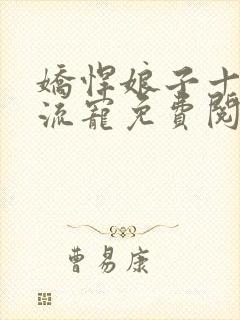 嬌悍娘子十
流寵免費閱
曹易康